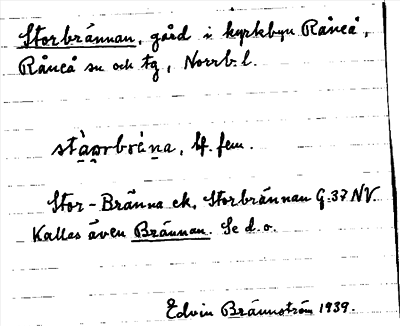 Storbrännan, gård i kyrkbyn Råneå,
Råneå sn och tg, Norrb. l.
bf. fem.
Stor-Bränna ek, Storbrännan G. 37 NV.
Kallas även Brännan. Se d. o.
Edvin Brännström 1939.